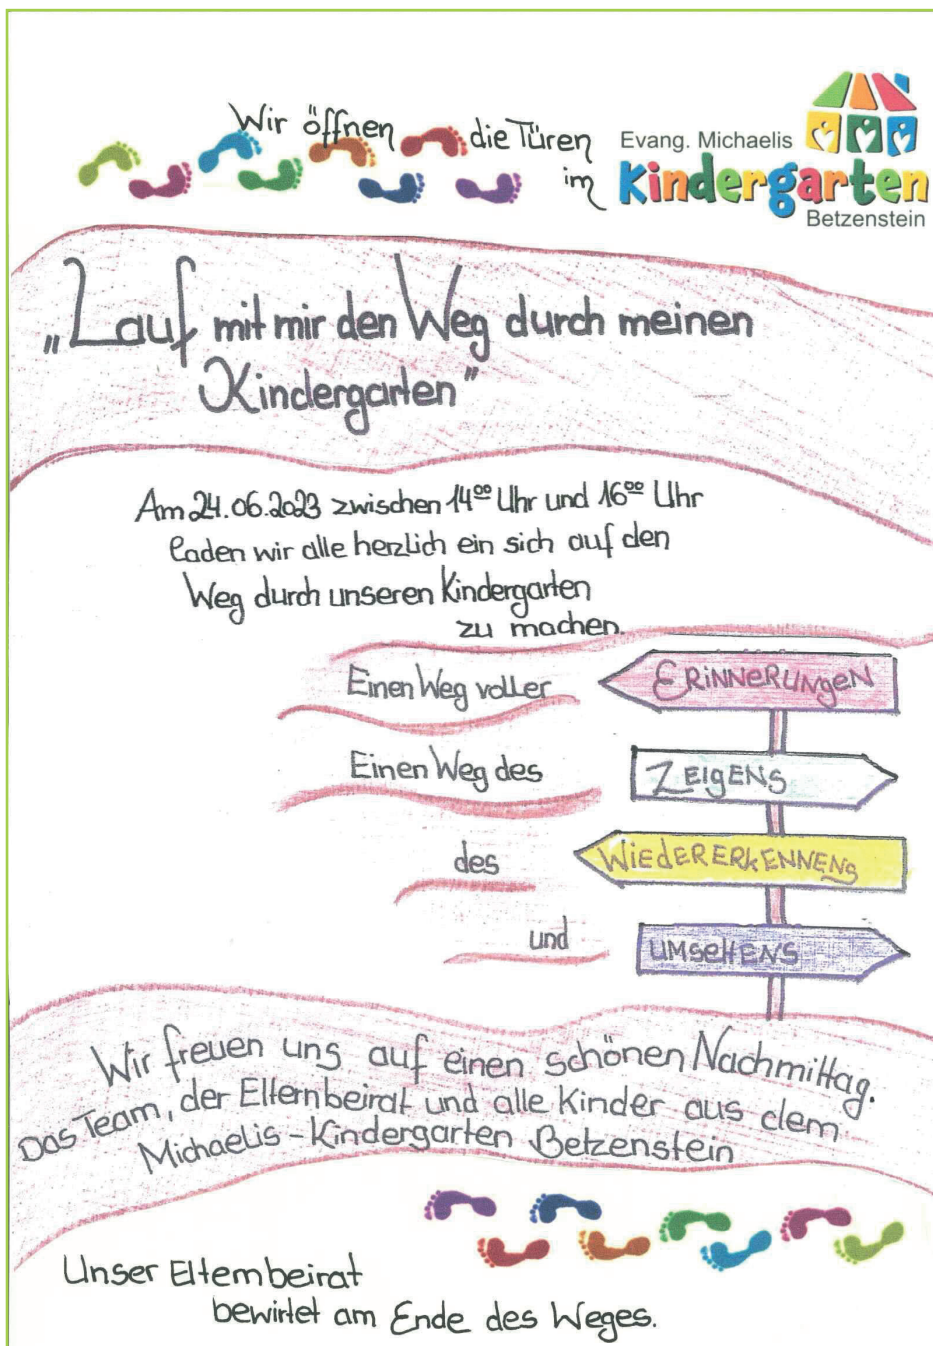 Wir öffnen die Türen
im
Evang. Michaelis
Kindergarten
Betzenstein
„Lauf mit mir den Weg durch meinen
Kindergarten"
Am 24.06.2023 zwischen 14⁰⁰ Uhr und 16⁰⁰ Uhr
laden wir alle herzlich ein sich auf den
Weg durch unseren Kindergarten
zu machen.
Einen Weg voller ERINNERUNGEN
Einen Weg des ZEIGENS
des WIEDERERKENNENS
und UMSEHENS
Wir freuen uns auf einen schönen Nachmittag.
Das Team, der Elternbeirat und alle Kinder aus dem
Michaelis-Kindergarten Betzenstein
Unser Elternbeirat
bewirtet am Ende des Weges.